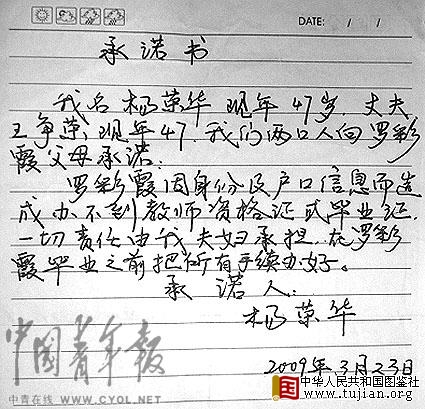 DATE: / /
承诺书
我名杨荣华 现年47岁, 丈夫
王争荣, 现年47. 我们两口人向罗彩
霞父母承诺:
罗彩霞因身份及户口信息而造
成办不到教师资格证或毕业证,
一切责任由我夫妇承担, 在罗彩
霞毕业之前把所有手续办好。
承诺人:
杨荣华
2009年3月23日
中国青年报
中青在线 WWW.CYOL.NET
中华人民共和国图鉴社
www.tujian.org